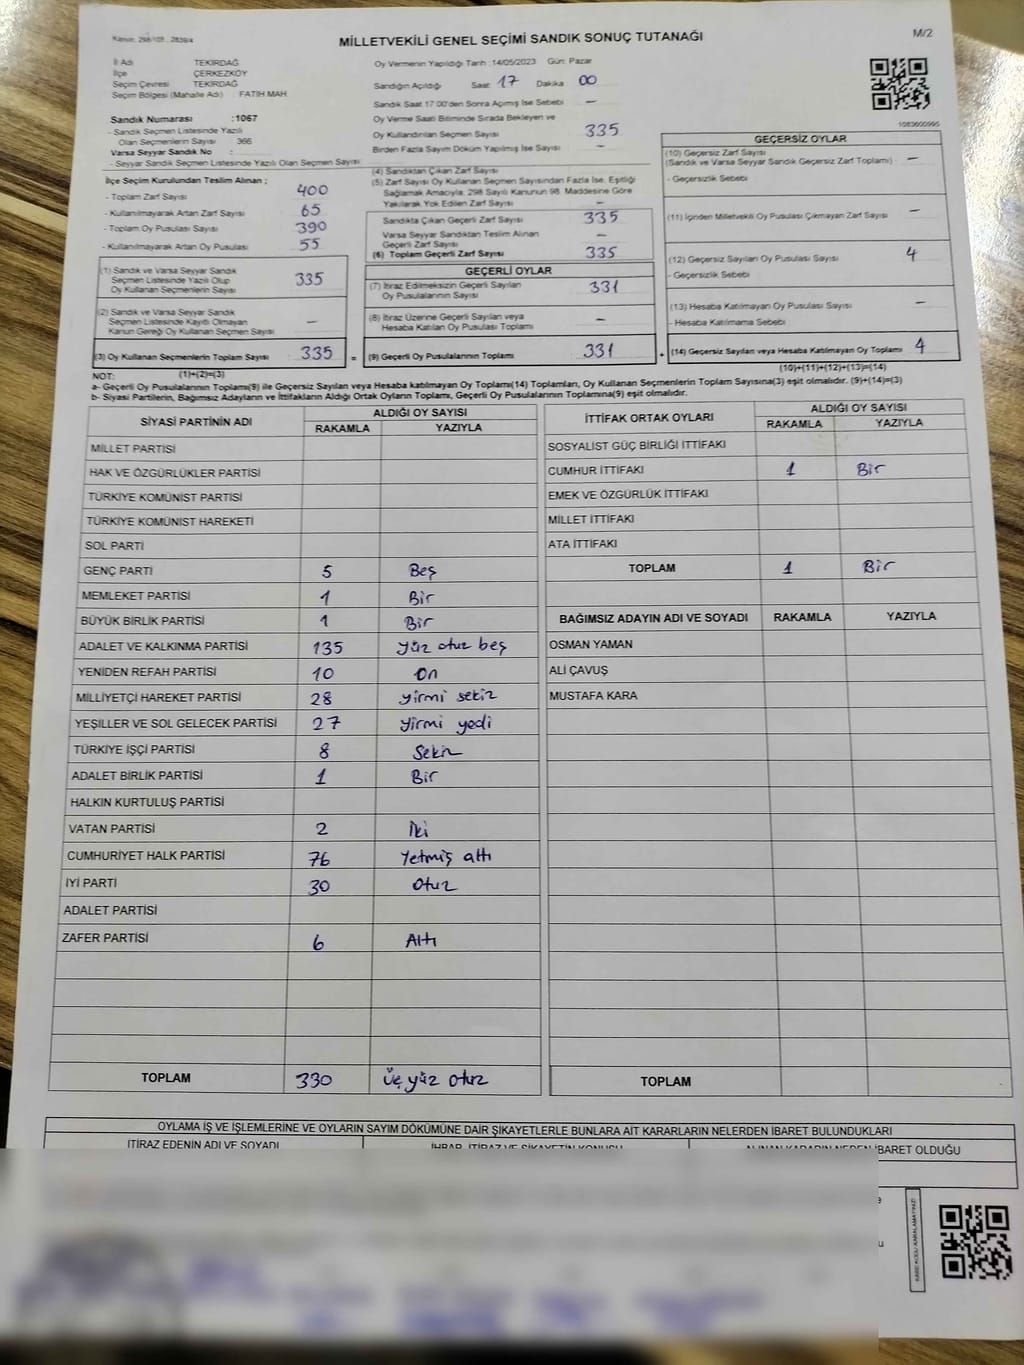 Kanun: 298/105 , 2839/4
MİLLETVEKİLİ GENEL SEÇİMİ SANDIK SONUÇ TUTANAĞI
M/2
İl Adı TEKİRDAĞ
İlçe ÇERKEZKÖY
Seçim Çevresi TEKİRDAĞ
Seçim Bölgesi (Mahalle Adı) : FATİH MAH.
Oy Vermenin Yapıldığı Tarih : 14/05/2023 Gün: Pazar
Sandığın Açıldığı Saat 17 Dakika 00
Sandık Saat 17:00'den Sonra Açılmış İse Sebebi –
Oy Verme Saati Bitiminde Sırada Bekleyen ve
Oy Kullandırılan Seçmen Sayısı 335
Birden Fazla Sayım Döküm Yapılmış İse Sayısı –
1083600995
Sandık Numarası :1067
- Sandık Seçmen Listesinde Yazılı
Olan Seçmenlerin Sayısı 366
Varsa Seyyar Sandık No :
- Seyyar Sandık Seçmen Listesinde Yazılı Olan Seçmen Sayısı
İlçe Seçim Kurulundan Teslim Alınan ;
- Toplam Zarf Sayısı 400
- Kullanılmayarak Artan Zarf Sayısı 65
- Toplam Oy Pusulası 390
- Kullanılmayarak Artan Oy Pusulası 55
(1) Sandık ve Varsa Seyyar Sandık
Seçmen Listesinde Yazılı Olup
Oy Kullanan Seçmenlerin Sayısı 335
(2) Sandık ve Varsa Seyyar Sandık
Seçmen Listesinde Kayıtlı Olmayan
Kanun Gereği Oy Kullanan Seçmen Sayısı –
(3) Oy Kullanan Seçmenlerin Toplam Sayısı 335 =
(1)+(2)=(3)
(4) Sandıktan Çıkan Zarf Sayısı
(5) Zarf Sayısı Oy Kullanan Seçmen Sayısından Fazla İse, Eşitliği
Sağlamak Amacıyla, 298 Sayılı Kanunun 98. Maddesine Göre
Yakılarak Yok Edilen Zarf Sayısı –
Sandıkta Çıkan Geçerli Zarf Sayısı 335
Varsa Seyyar Sandıktan Teslim Alınan
Geçerli Zarf Sayısı –
(6) Toplam Geçerli Zarf Sayısı 335
GEÇERLİ OYLAR
(7) İtiraz Edilmeksizin Geçerli Sayılan
Oy Pusulalarının Sayısı 331
(8) İtiraz Üzerine Geçerli Sayılan veya
Hesaba Katılan Oy Pusulası Toplamı –
(9) Geçerli Oy Pusulalarının Toplamı 331 +
GEÇERSİZ OYLAR
(10) Geçersiz Zarf Sayısı
(Sandık ve Varsa Seyyar Sandık Geçersiz Zarf Toplamı) –
- Geçersizlik Sebebi
(11) İçinden Milletvekili Oy Pusulası Çıkmayan Zarf Sayısı –
(12) Geçersiz Sayılan Oy Pusulası Sayısı 4
- Geçersizlik Sebebi
(13) Hesaba Katılmayan Oy Pusulası Sayısı –
- Hesaba Katılmama Sebebi
(14) Geçersiz Sayılan veya Hesaba Katılmayan Oy Toplamı 4
(10)+(11)+(12)+(13)=(14)
NOT:
a- Geçerli Oy Pusulalarının Toplamı(9) ile Geçersiz Sayılan veya Hesaba katılmayan Oy Toplamı(14) Toplamları, Oy Kullanan Seçmenlerin Toplam Sayısına(3) eşit olmalıdır. (9)+(14)=(3)
b- Siyasi Partilerin, Bağımsız Adayların ve İttifakların Aldığı Ortak Oyların Toplamı, Geçerli Oy Pusulalarının Toplamına(9) eşit olmalıdır.
SİYASİ PARTİNİN ADI ALDIĞI OY SAYISI
RAKAMLA YAZIYLA
MİLLET PARTİSİ
HAK VE ÖZGÜRLÜKLER PARTİSİ
TÜRKİYE KOMÜNİST PARTİSİ
TÜRKİYE KOMÜNİST HAREKETİ
SOL PARTİ
GENÇ PARTİ 5 Beş
MEMLEKET PARTİSİ 1 Bir
BÜYÜK BİRLİK PARTİSİ 1 Bir
ADALET VE KALKINMA PARTİSİ 135 yüz otuz beş
YENİDEN REFAH PARTİSİ 10 On
MİLLİYETÇİ HAREKET PARTİSİ 28 yirmi sekiz
YEŞİLLER VE SOL GELECEK PARTİSİ 27 yirmi yedi
TÜRKİYE İŞÇİ PARTİSİ 8 Sekiz
ADALET BİRLİK PARTİSİ 1 Bir
HALKIN KURTULUŞ PARTİSİ
VATAN PARTİSİ 2 İki
CUMHURİYET HALK PARTİSİ 76 Yetmiş altı
İYİ PARTİ 30 Otuz
ADALET PARTİSİ
ZAFER PARTİSİ 6 Altı
TOPLAM 330 Üç yüz otuz
İTTİFAK ORTAK OYLARI ALDIĞI OY SAYISI
RAKAMLA YAZIYLA
SOSYALİST GÜÇ BİRLİĞİ İTTİFAKI
CUMHUR İTTİFAKI 1 Bir
EMEK VE ÖZGÜRLÜK İTTİFAKI
MİLLET İTTİFAKI
ATA İTTİFAKI
TOPLAM 1 Bir
BAĞIMSIZ ADAYIN ADI VE SOYADI RAKAMLA YAZIYLA
OSMAN YAMAN
ALİ ÇAVUŞ
MUSTAFA KARA
TOPLAM
OYLAMA İŞ VE İŞLEMLERİNE VE OYLARIN SAYIM DÖKÜMÜNE DAİR ŞİKAYETLERLE BUNLARA AİT KARARLARIN NELERDEN İBARET BULUNDUKLARI
İTİRAZ EDENİN ADI VE SOYADI İHBAR, İTİRAZ VE ŞİKAYETİN KONUSU ALINAN KARARIN NEDEN İBARET OLDUĞU
KARE KODU KARALAMAYINIZ!